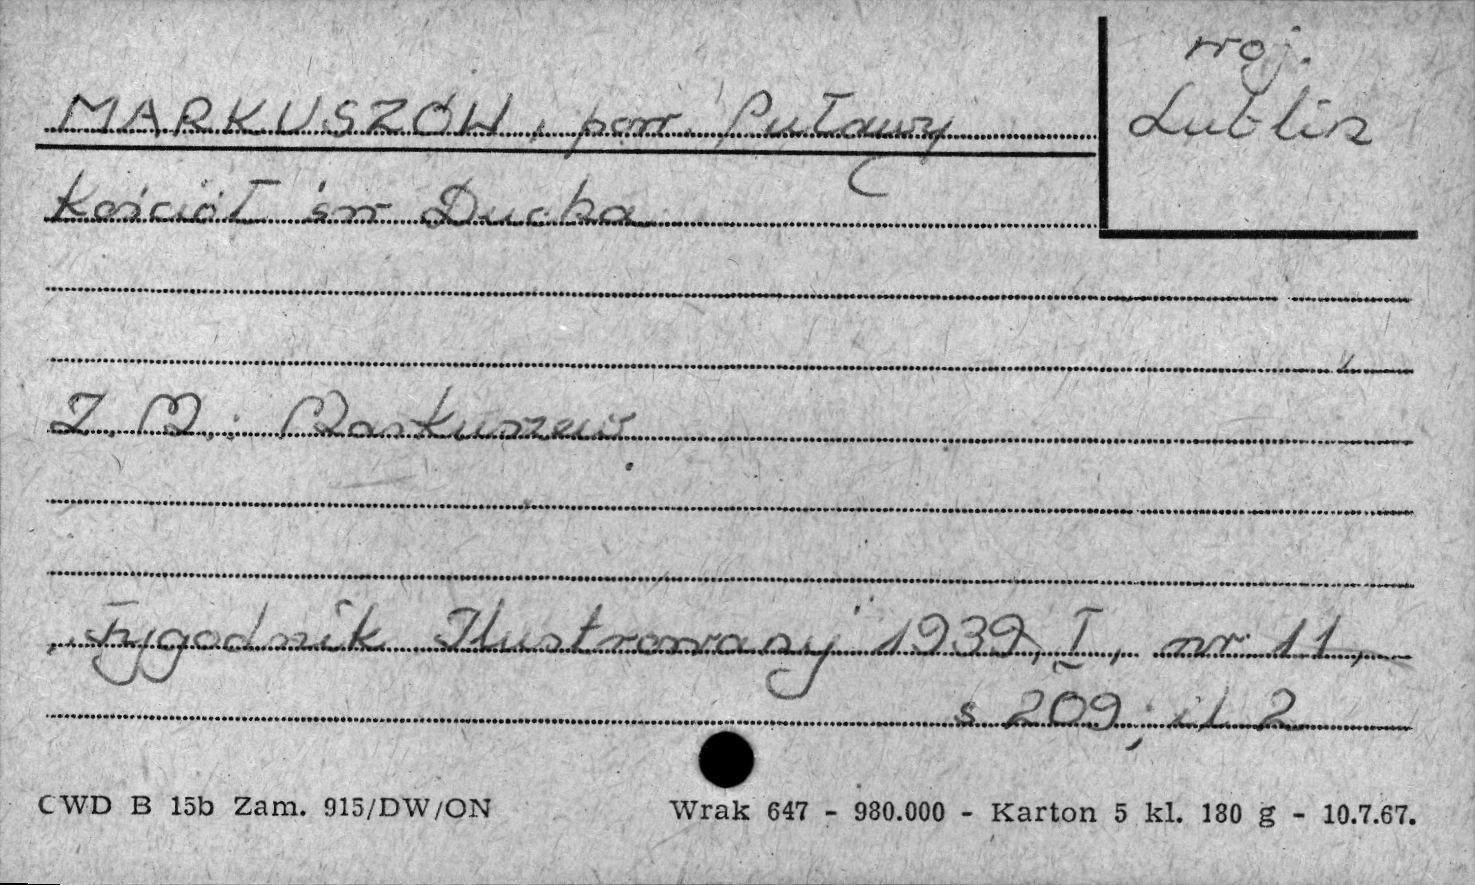 MARKUSZÓW, pow. Puławy
woj.
Lublin
Kościół św Ducha
Z. M.: Markuszew
„Tygodnik Ilustrowany" 1939, I, nr 11,
s 209; il 2
CWD B 15b Zam. 915/DW/ON
Wrak 647 - 980.000 - Karton 5 kl. 180 g - 10.7.67.